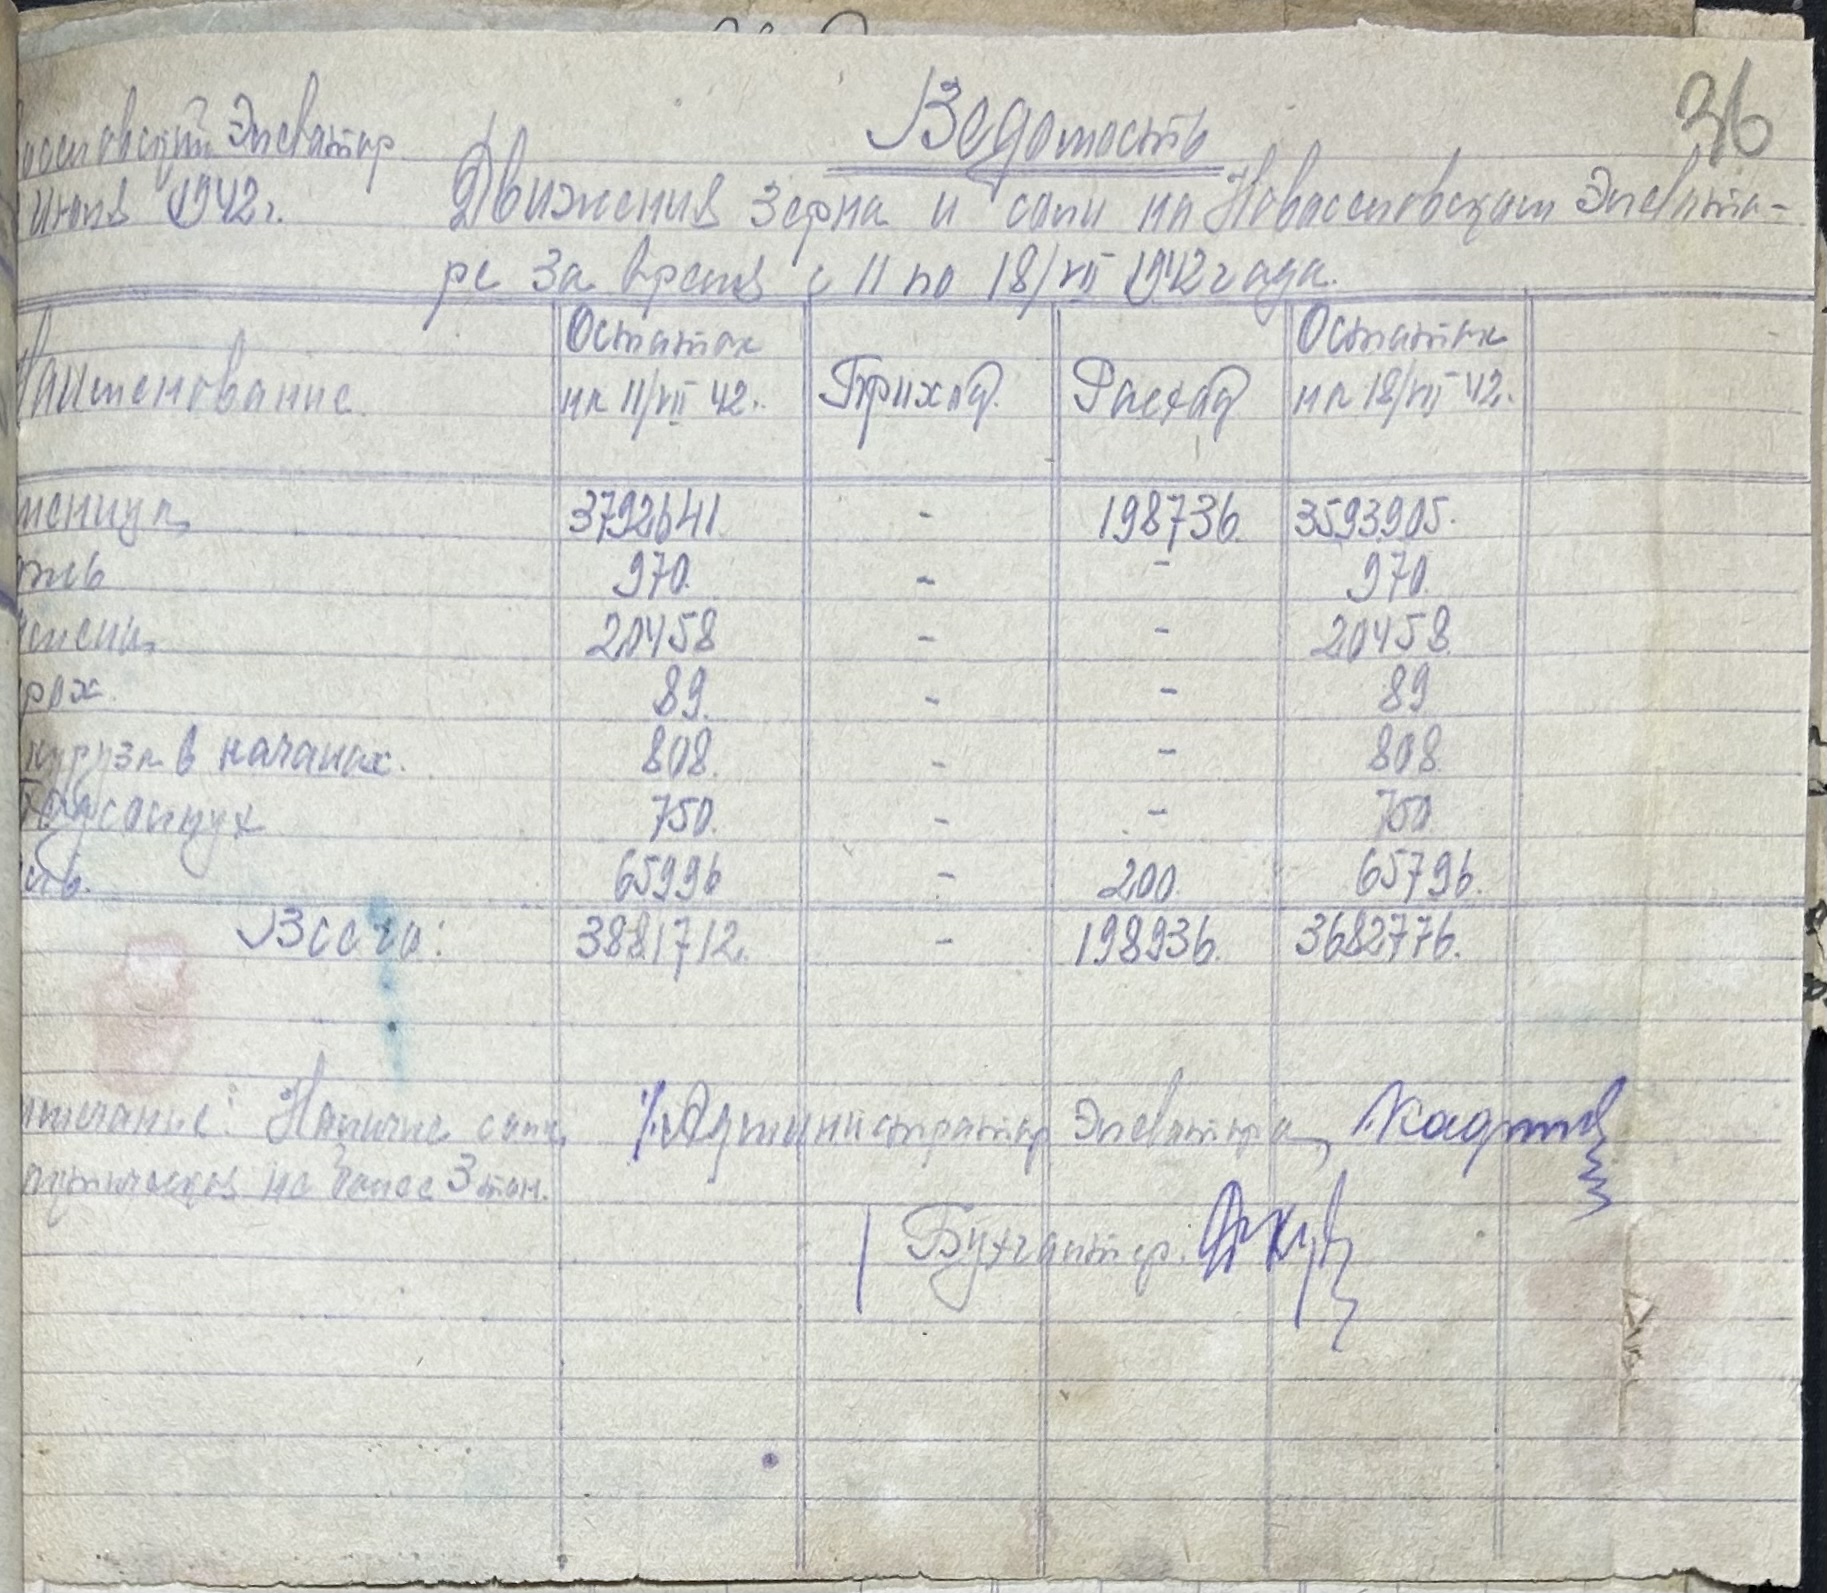 36
Ведомость
оселовский Элеватор
июля 1942г.
Движения зерна и соли на Новоселовском Элевато-
ре за время с 11 по 18/VII 1942 года.
Наименование. Остаток на 11/VII 42. Приход. Расход Остаток на 18/VII 42.
шеница 3792641. - 198736. 3593905.
ожь 970. - - 970.
чмень 20458 - - 20458.
рох. 89. - - 89
куруза в качанах. 808. - - 808
Подсолнух 750. - - 750
ль. 65996 - 200. 65796.
Всего: 3881712. - 198936. 3682776.
мечание: Наличие соли
ктически не более 3 тон.
Администратор Элеватора
Бухгалтер.